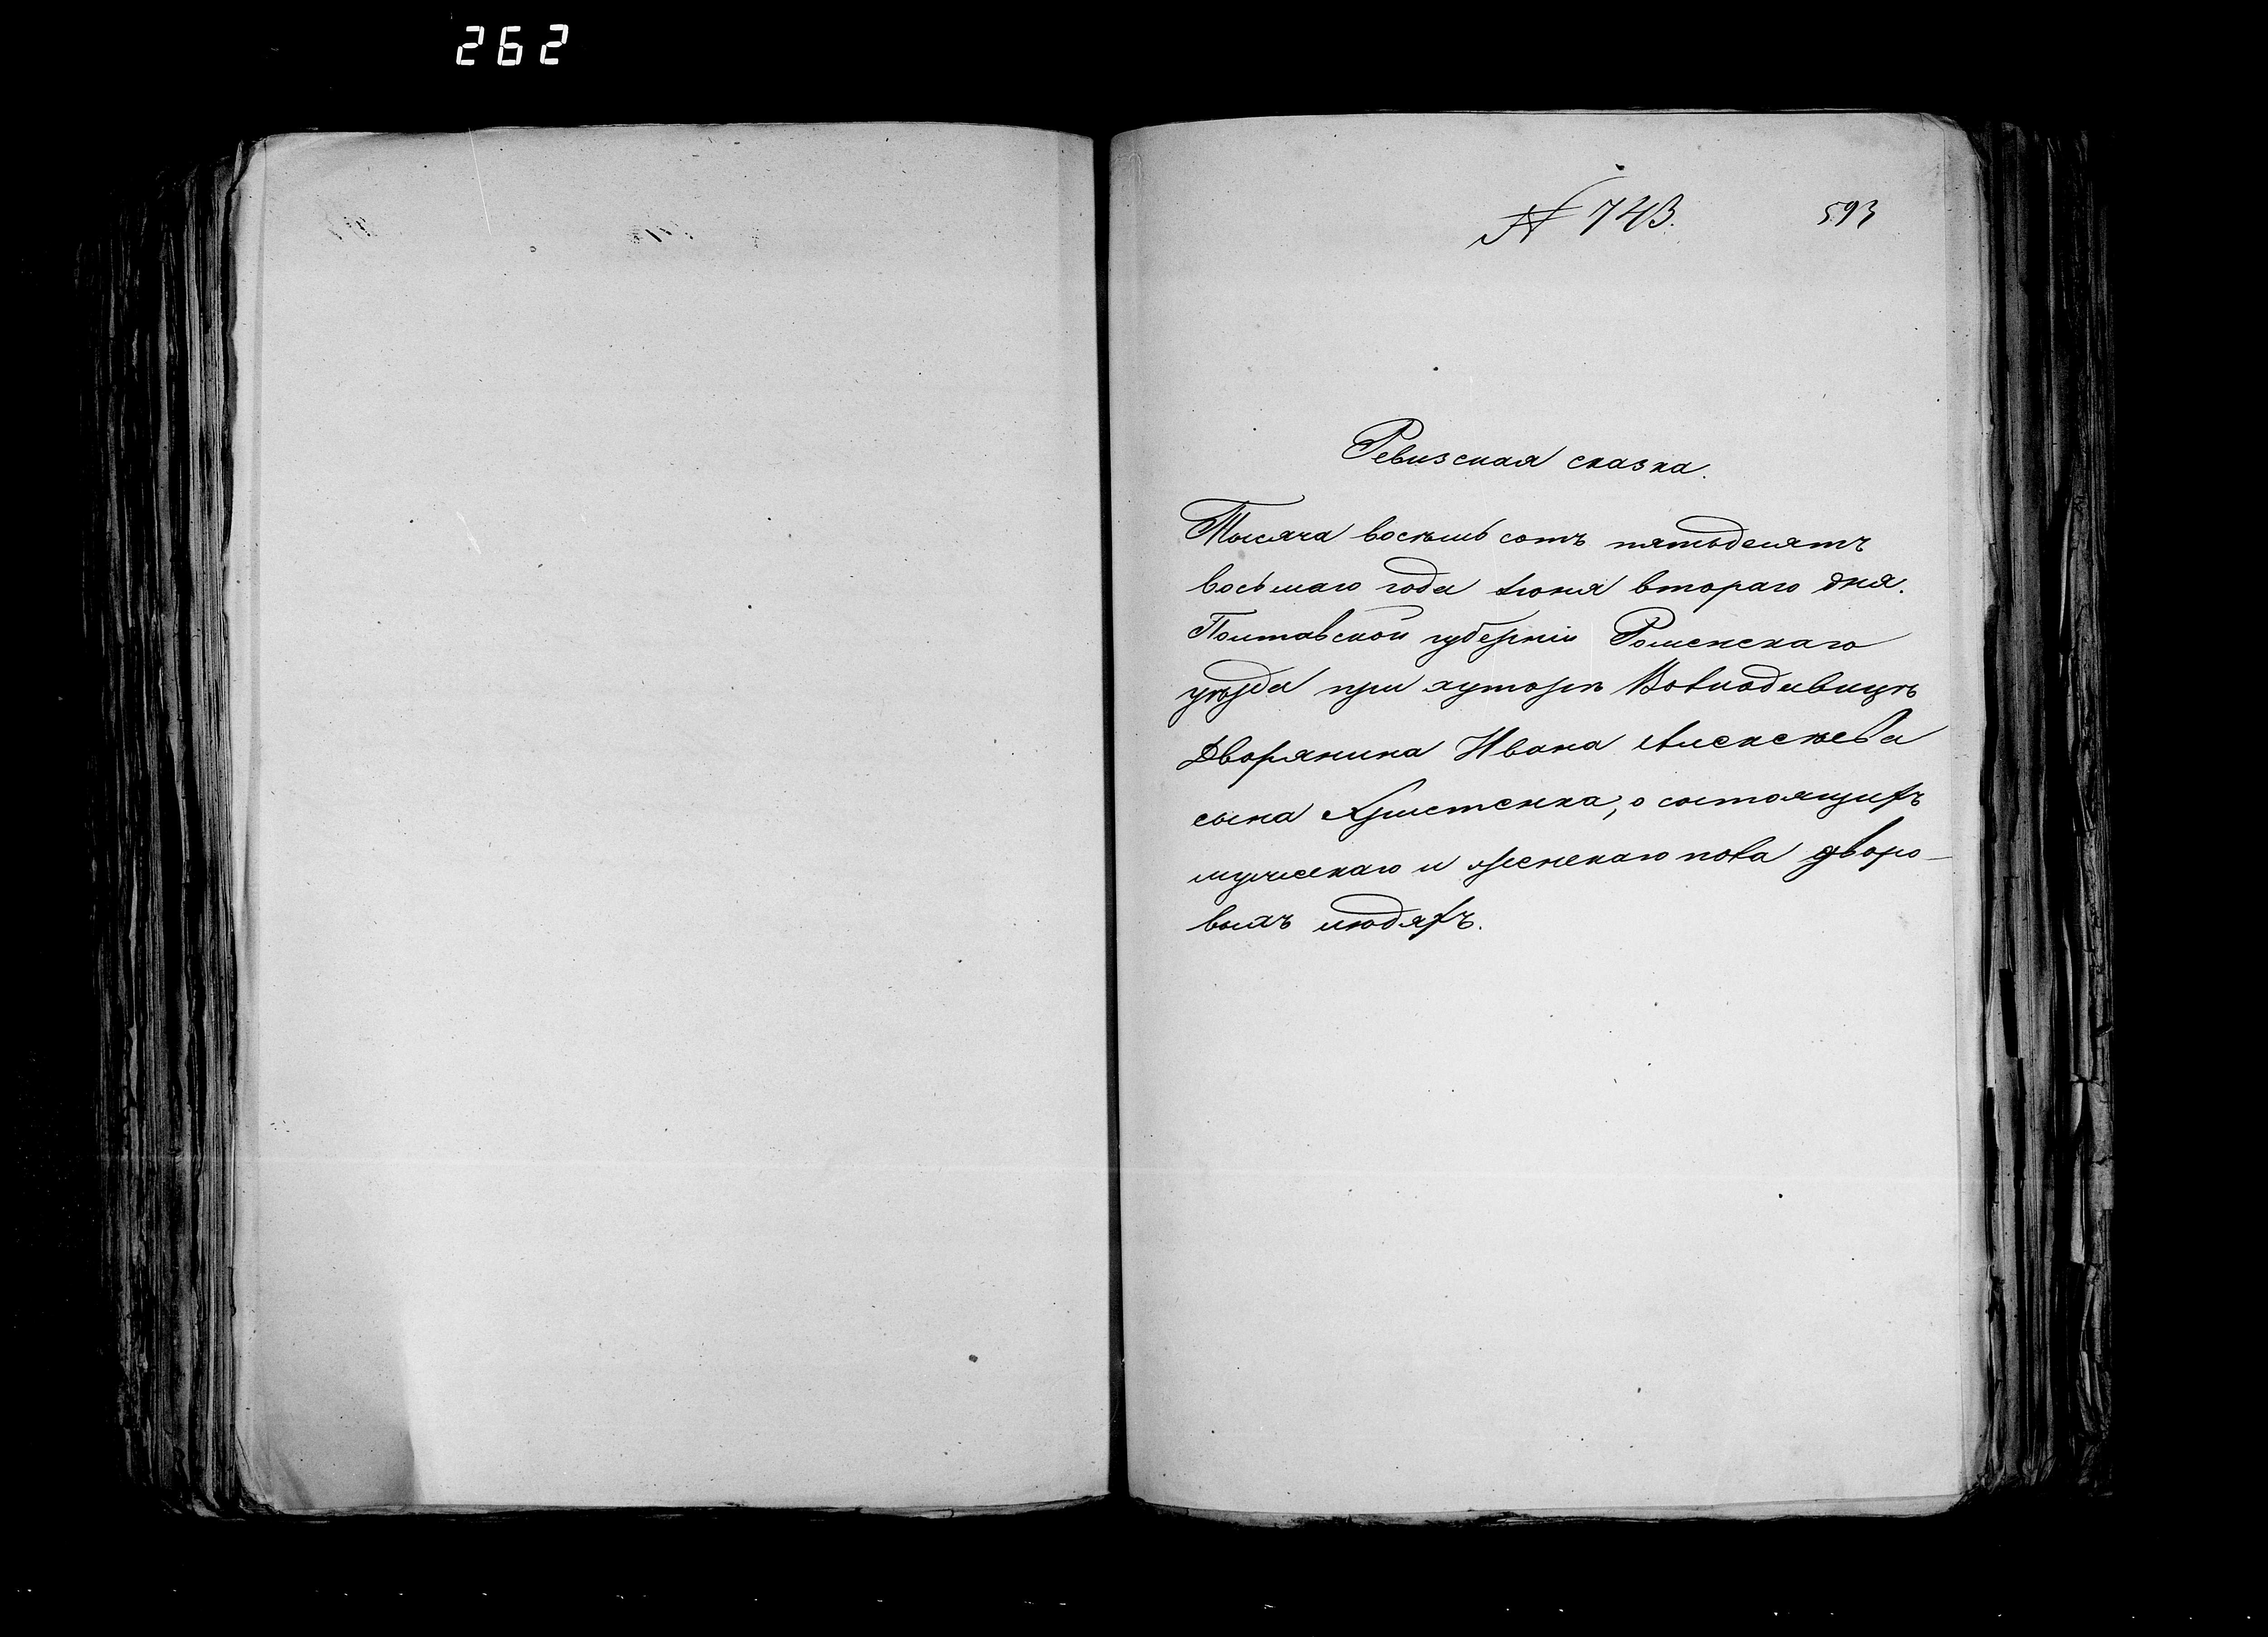 262
№ 743. 593
Ревизская сказка.
Тысяча восѣмь сотъ пятьдесятъ
восьмаго года Іюня втораго дня.
Полтавской губерніи Роменскаго
уѣзда при хуторѣ
Дворянина Ивана Алексѣева
сына Христенка, о состоящихъ
мужескаго и женскаго пола дворо-
выхъ людяхъ.